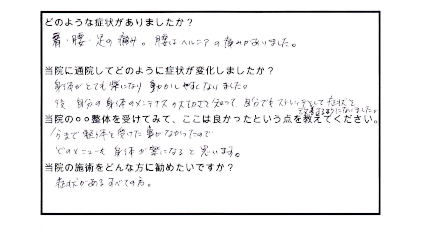 どのような症状がありましたか？
肩・腰・足の痛み。腰はヘルニアの痛みがありました。
当院に通院してどのように症状が変化しましたか？
身体がとても楽になり動かしやすくなりました。
後、自分の身体のメンテナンスの大切さを知って、自分でもストレッチとして症状を
改善するようになりました。
当院の○○整体を受けてみて、ここは良かったという点を教えてください。
今まで整体を受けた事がなかったので
どのメニューも身体が楽になると思います。
当院の施術をどんな方に勧めたいですか？
症状があるすべての方。